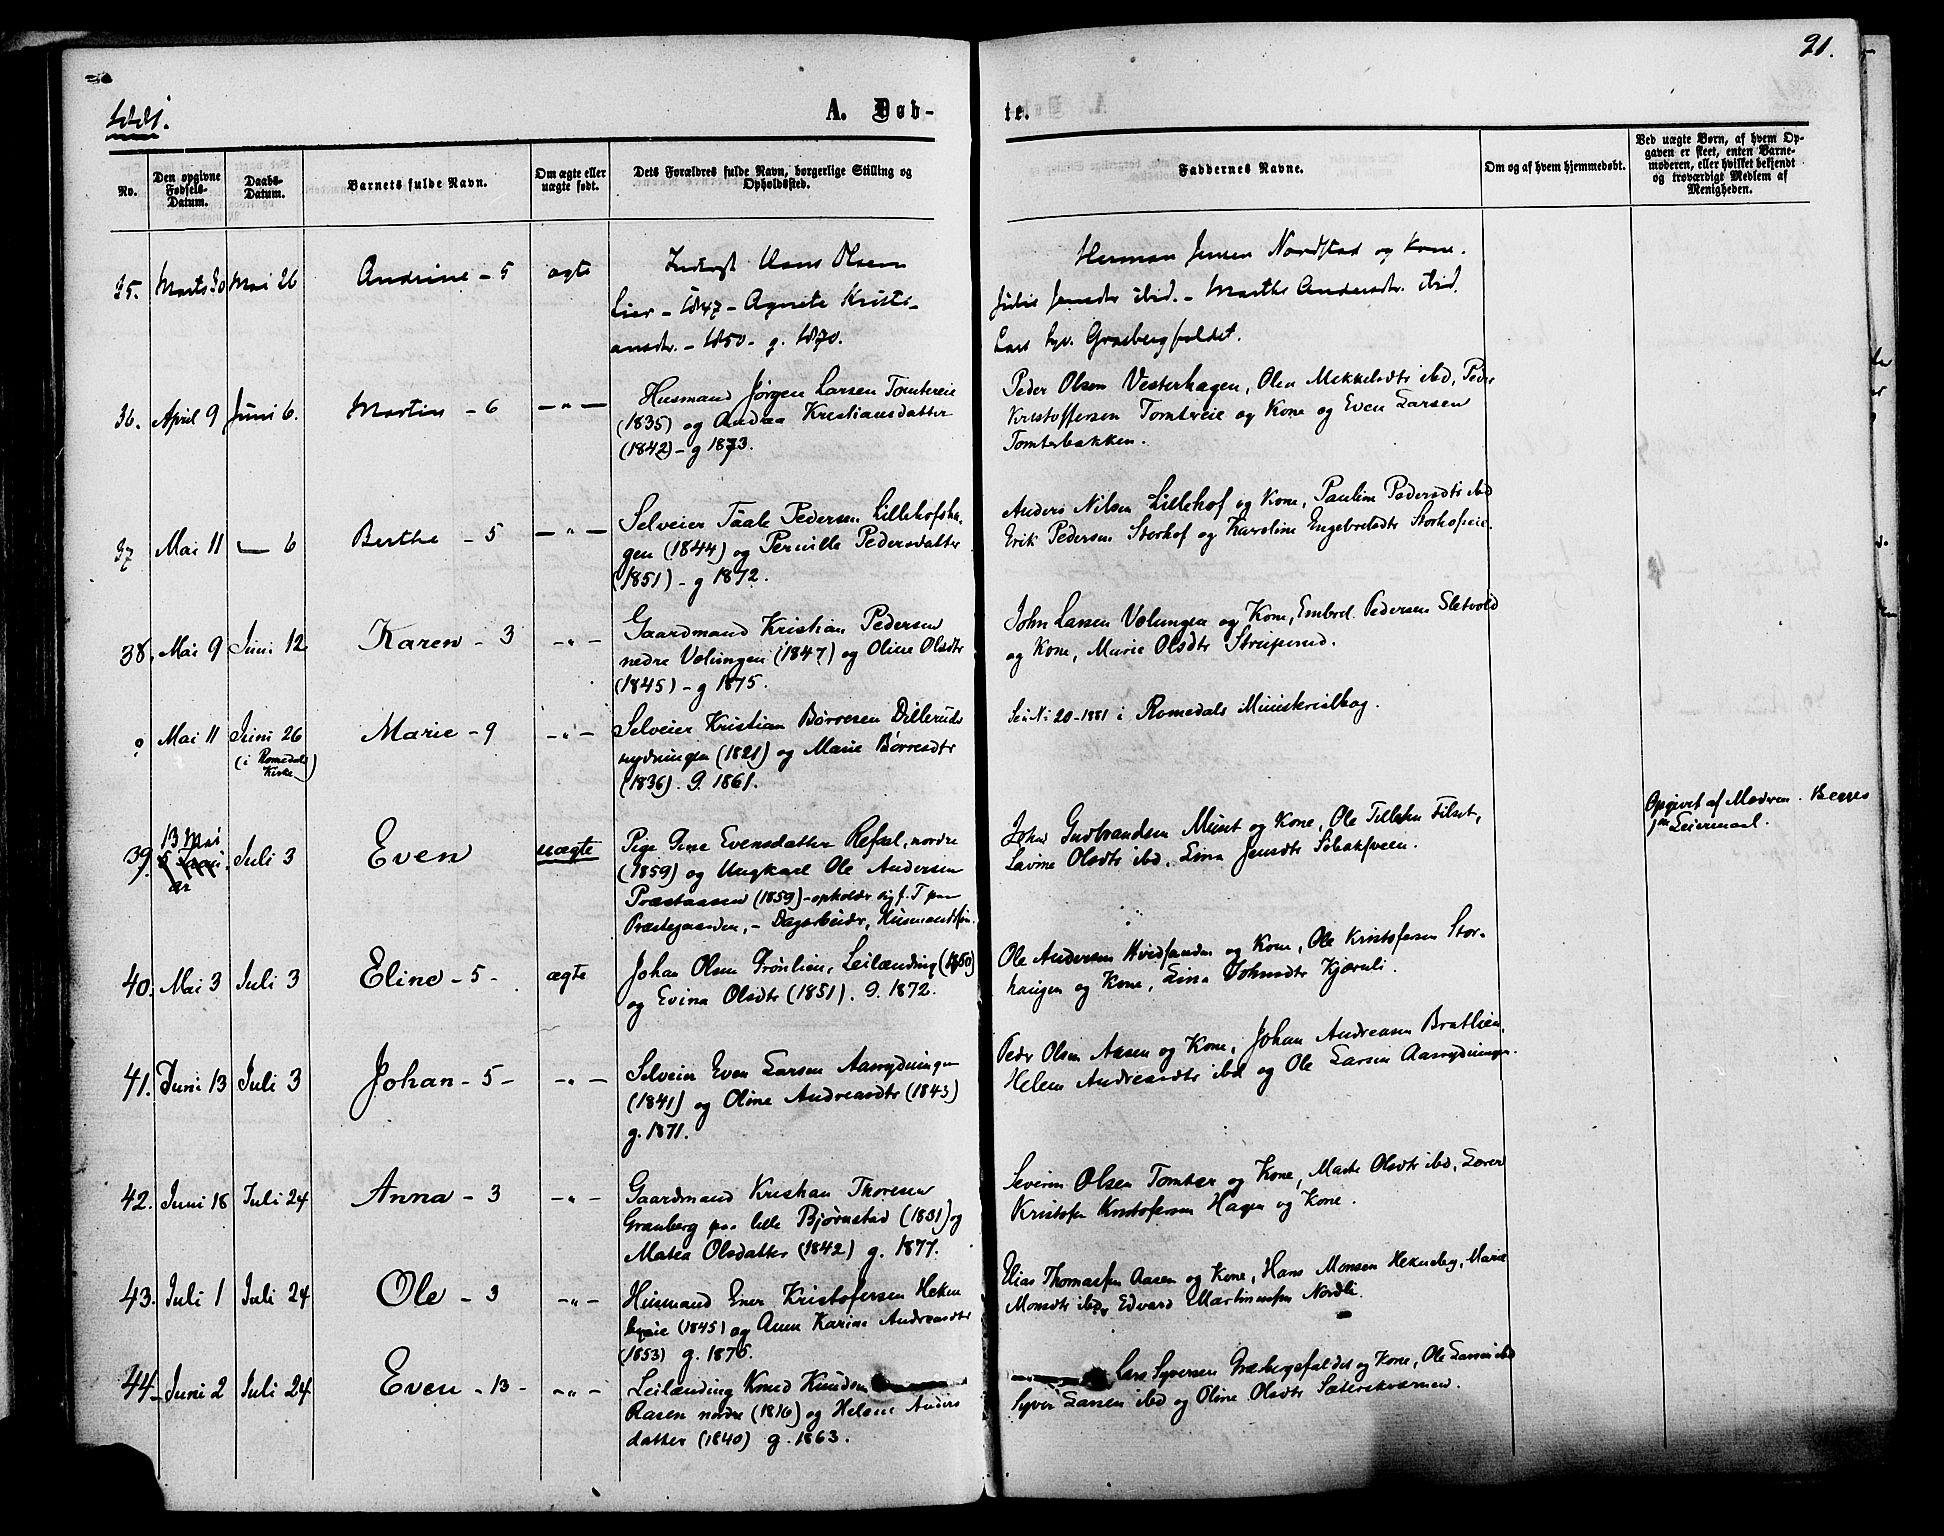 21.
1881.
A. Døb-
te.
No.
Den opgivne Fødsels-Datum.
Daabs-Datum.
Barnets fulde Navn.
Om ægte eller uægte født.
Dets Forældres fulde Navn, borgerlige Stilling og Opholdssted.
Faddernes Navne.
Om og af hvem hjemmedøbt.
Ved uægte Børn, af hvem Opgaven er skeet, enten Barnemoderen, eller hvilket bekjendt og troværdigt Medlem af Menigheden.
35. Marts 30 Mai 26 Andrine - 5 ægte Inderst Hans Olsen
Lier - 1847 - Agnete Kristi-
ansdtr. - 1850 - g. 1870.
Herman Jensen Nordstad og Kone.
Julie Jensdtr ibid. - Marthe Andersdtr. ibid.
Lars Syv. Græsbergfaldet.
36. April 9 Juni 6. Martin - 6 - " - Husmand Jørgen Larsen Tomtereie
(1835) og Andrea Kristiansdatter
(1842) - g 1873.
Peder Olsen Vesterhagen, Olea Mikkelsdtr ibd, Peder
Kristoffersen Tomtereie og Kone og Even Larsen
Tomterbakken.
37 Mai 11 — 6 Berthe - 5 - " - Selveier Taale Pedersen Lillehofsha-
gen (1844) og Pernille Pedersdatter
(1851) - g 1872.
Anders Nilsen Lillehof og Kone, Pauline Pedersdtr ibd
Erik Pedersen Storhof og Karoline Engebretsdtr Storhofeie.
38. Mai 9 Juni 12 Karen - 3 - " - Gaardmand Kristian Pedersen
nedre Volungen (1847) og Oline Olsdtr
(1845) - g 1875.
John Larsen Volungen og Kone, Embret Pedersen Sletvold
og Kone, Marie Olsdtr Struperud.
? Mai 11 Juni 26 Marie - 9 - " - Selveier Kristian Børresen Dillerud-
(i Romedals
Kirke)
rydningen (1821) og Marie Børresdtr
(1836). g. 1861.
Se No 20-1881 i Romedals Ministerialbog.
39. 13 Mai Juli 3 Even uægte Pige Gine Evensdatter Refsal, nordre
(1859) og Ungkarl Ole Andersen
Præstaasen (1859) - opholder sig f. T paa
Præstegaarden, - Dagarbeider, Husmandssøn.
John Gudbrandsen Muset og Kone, Ole Tillesen Tilset,
Lavine Olsdtr ibd, Lina Jensdtr
Opgivet af Modren. Begges
1ste Leiermaal.
40. Mai 3 Juli 3 Eline - 5 - ægte Johan Olsen Grønlien, Leilænding (1850)
og Evina Olsdtr (1851). g. 1872.
Ole Andersen Hvidsanden og Kone, Ole Kristofersen Stor-
haugen og Kone, Lina Johnsdtr Kjærnli.
41. Juni 13 Juli 3 Johan - 5 - - " - Selveier Even Larsen Aasrydningen
(1841) og Oline Andreasdtr (1843)
g. 1871.
Peder Olsen Aasen og Kone, Johan Andreasen Bratlien,
Helene Andreasdtr ibd og Ole Larsen Aasrydningen.
42. Juni 18 Juli 24 Anna - 3 - " - Gaardmand Kristian Thoresen
Grønberg paa lille Bjørnstad (1831) og
Matea Olsdatter (1842) g. 1877.
Severin Olsen Tomter og Kone, Marte Olsdtr ibd, Lærer
Kristofer Kristofersen Hagen og Kone.
43. Juli 1 Juli 24 Ole - 3 - " - Husmand Ener Kristofersen Heken-
byeie (1845) og Anne Karine Andreasdtr
(1853) g. 1875.
Elias Thomassen Aasen og Kone, Hans Monsen Hekneby, Marie
Monsdtr ibd, Edvard Martinussen Nordli.
44 Juni 2 Juli 24 Even - 13 - - " - Leilænding Knud Knudsen
Aasen nordre (1816) og Helene Anders
datter (1840) g. 1863.
Lars Syversen Græsbergsfaldet og Kone, Ole Larsen ibd
Syver Larsen ibd og Oline Olsdtr Sæterskværnen.